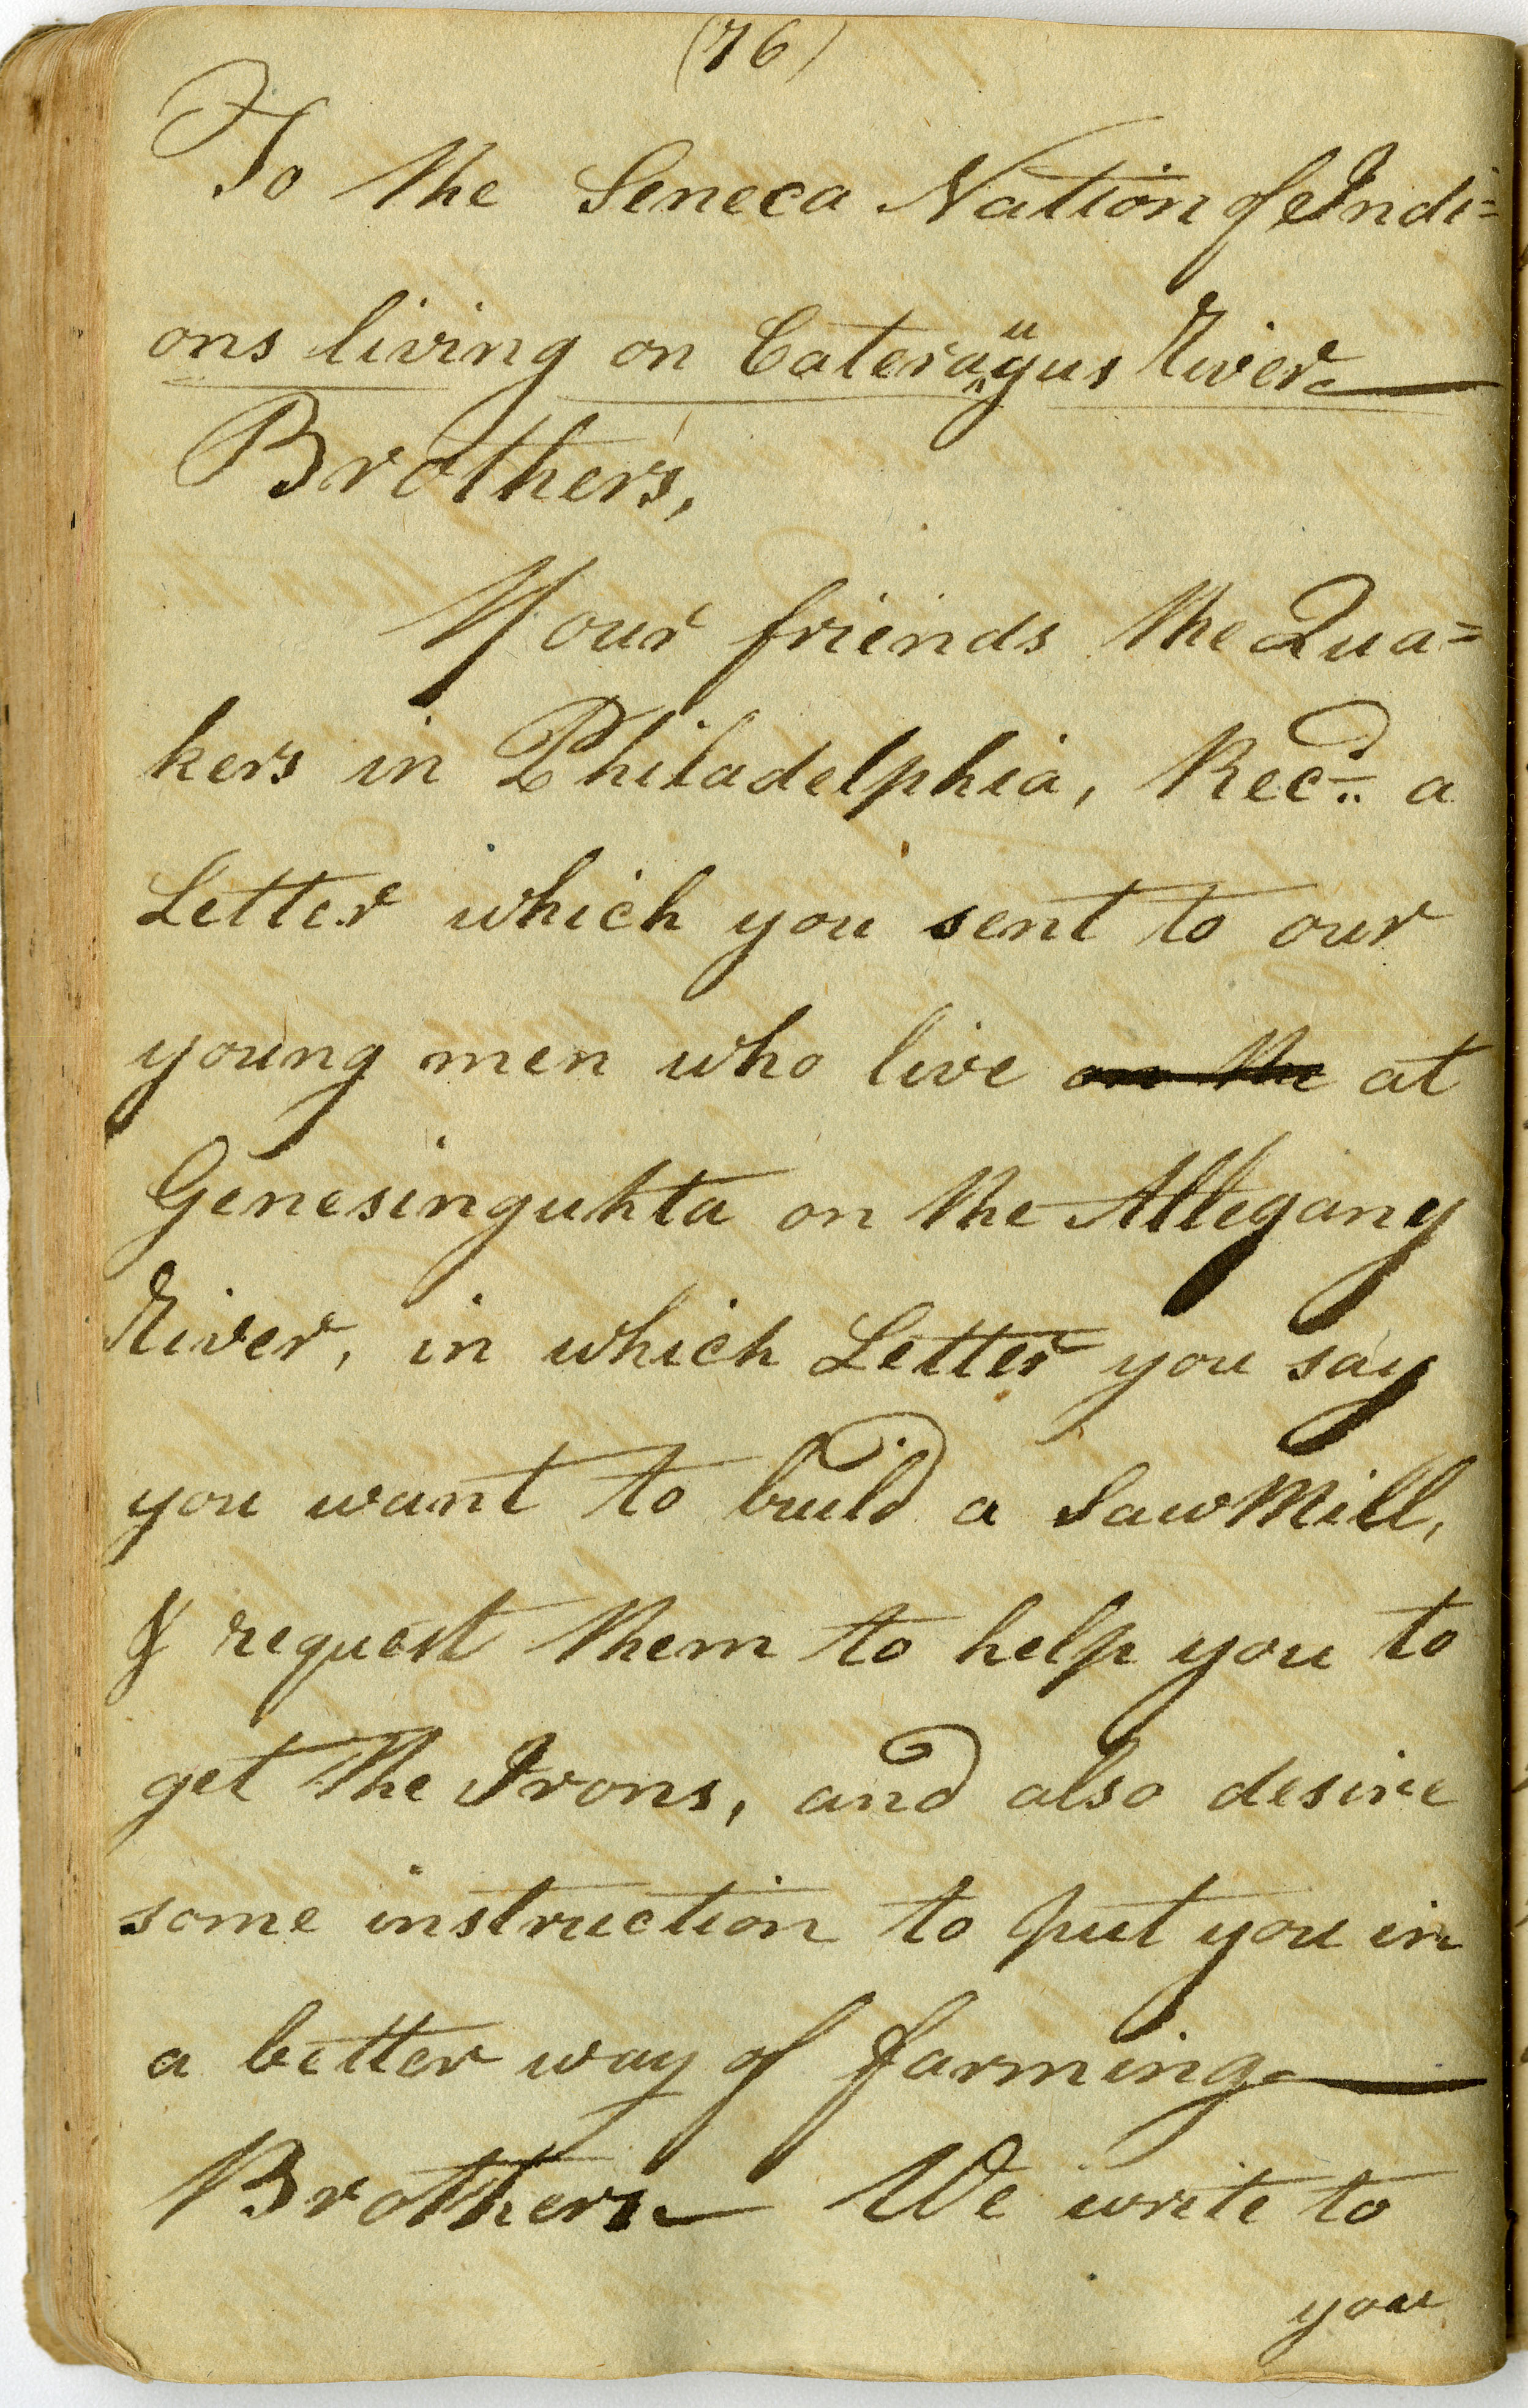 (76)
To the Seneca Nation of Indi=
ons living on Cateraugus River
Brothers,
Your friends the Qua=
kers in Philadelphia, Rec.d a
Letter which you sent to our
young men who live on the at
Genesinguhta on the Allegany
River, in which Letter you say
you want to build a SawMill,
& request them to help you to
get the Irons, and also desire
some instruction to put you in
a better way of farming
Brothers We write to
you